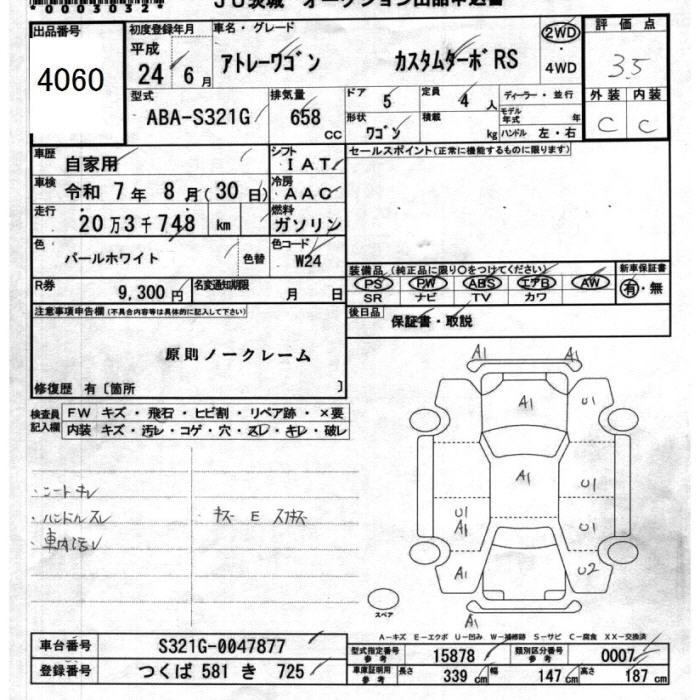 *00030324*
JU茨城 オークション出品申込書
出品番号
4060
初度登録年月
平成
24 6月
車名・グレード
アトレーワゴン カスタムターボRS
2WD
・
4WD
評価点
3.5
外装 内装
C C
型式
ABA-S321G
排気量
658
cc
ドア
5
定員
4人
ディーラー・並行
形状
ワゴン
積載
kg
モデル年式
年
ハンドル 左・右
車歴
自家用
シフト
IAT
車検
令和 7年 8月(30日)
冷房
AAC
走行
20万3千748 km
燃料
ガソリン
色
パールホワイト
色替
色コード
W24
R券
9,300円
名変通知期限
月 日
セールスポイント(正常に機能するものに限ります)
装備品(純正品に限り○をつけてください)
PS PW ABS エアB AW
SR ナビ TV カワ
新車保証書
有・無
後日品
保証書・取説
注意事項申告欄(不具合内容等は具体的に記入して下さい)
原則ノークレーム
修復歴 有〔箇所 〕
検査員記入欄
FW キズ・飛石・ヒビ割・リペア跡・×要
内装 キズ・汚レ・コゲ・穴・スレ・キレ・破レ
・シートキレ
・ハンドルスレ
・車内汚レ
キズ E スリキズ
A1 A1
A1 U1
A1 U1
U1
A1
U1
A1 U2
A1
スペア
A―キズ E―エクボ U―凹み W―補修跡 S―サビ C―腐食 XX―交換済
車台番号
S321G-0047877
登録番号
つくば 581 き 725
型式指定番号
参考
15878
類別区分番号
参考
0007
車庫証明用
参考
長さ
339 cm
幅
147 cm
高さ
187 cm